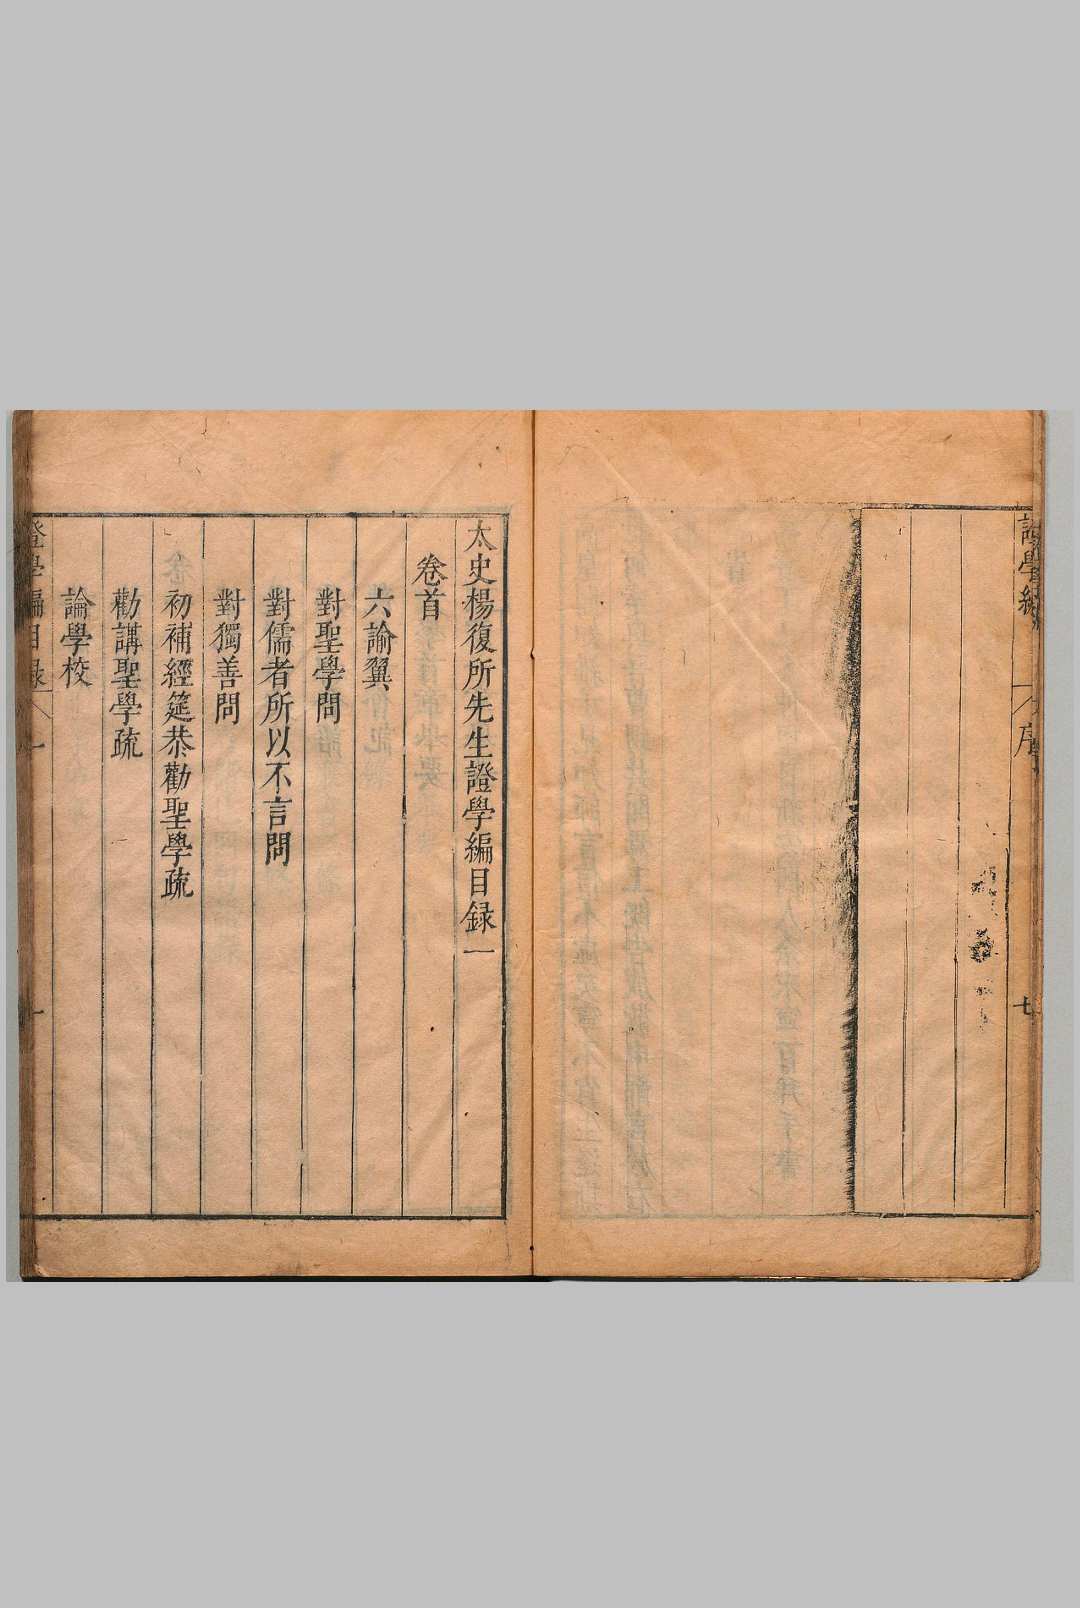 證學編
序
七
太史楊復所先生證學編目錄一
卷首
六諭翼
對聖學問
對儒者所以不言問
對獨善問
初補經筵恭勸聖學疏
勸講聖學疏
論學校
證學編目錄
一